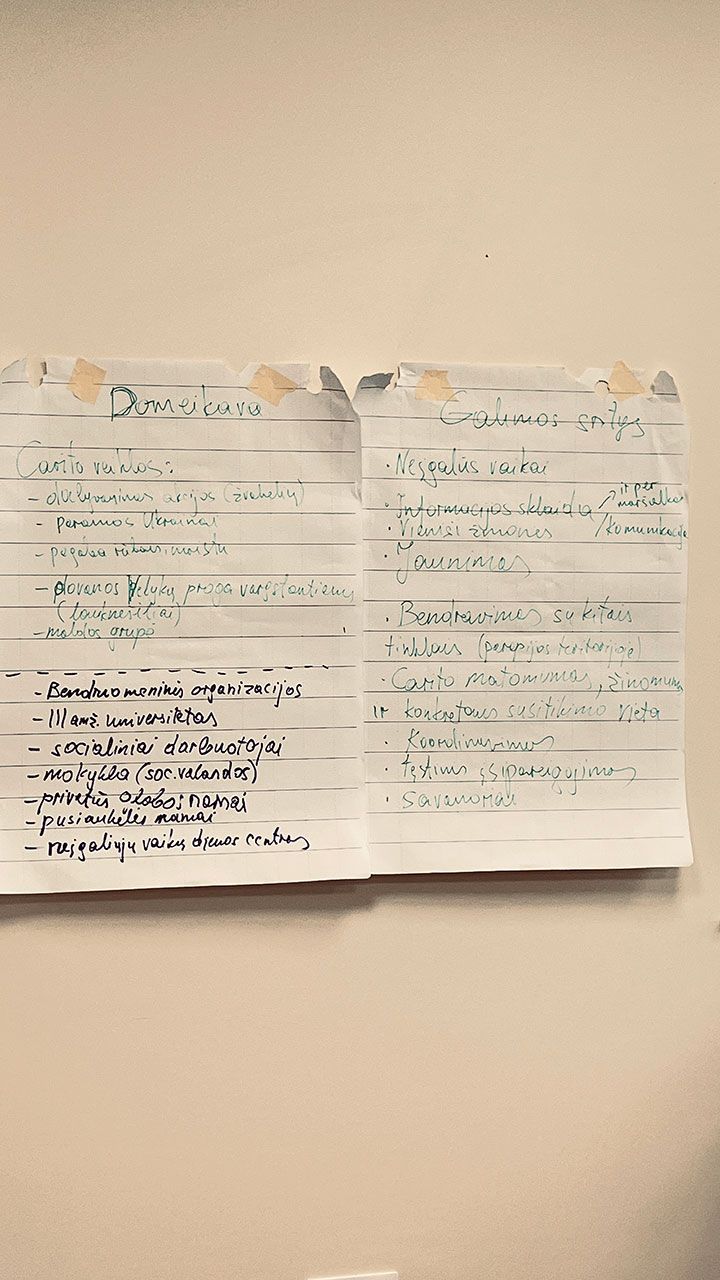 Domeikava
Carito veiklos:
- dalyvavimas akcijos (žvakelių)
- paramos Ukrainai
- pagalba rūbais, maistu
- dovanos Velykų proga vargstantiems
(lauknešėliai)
- maldos grupė
- Bendruomeninės organizacijos
- III amž. universitetas
- socialiniai darbuotojai
- mokykla (soc. valandos)
- privatūs globos namai
- pusiaukelės namai
- neįgaliųjų vaikų dienos centras
Galimos sritys
· Neįgalūs vaikai
· Informacijos sklaida ir per
/komunikacija
· Vieniši žmonės
· Jaunimas
· Bendravimas su kitais
tinklais (parapijos teritorijoje)
· Carito matomumas, žinomumas
ir konkretaus susitikimo vieta
· Koordinavimas
· tęstinis įsipareigojimas
· savanoriai